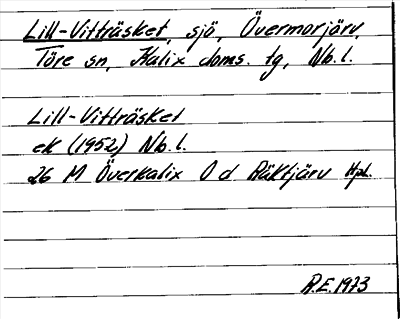 Lill-Vitträsket, sjö, Övermorjärv,
Töre sn, Kalix doms. tg, Nb.l.
Lill-Vitträsket
ek (1952) Nb.l.
26 M Överkalix O d Räktjärv Hpl.
R.E. 1973